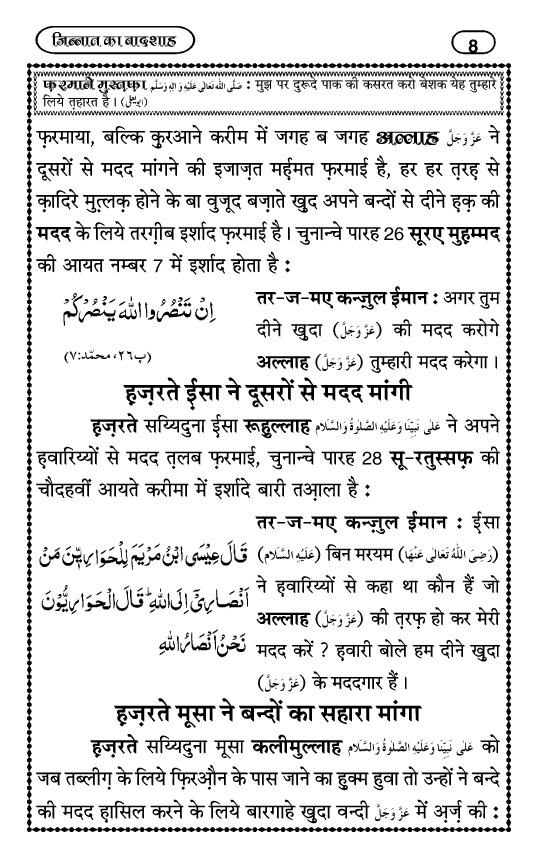 जिन्नात का बादशाह
8
फ़रमाने मुस्त़फ़ा صَلَّى اللهُ تَعَالٰى عَلَيْهِ وَاٰلِهٖ وَسَلَّم : मुझ पर दुरूदे पाक की कसरत करो बेशक येह तुम्हारे
लिये त़हारत है। (ابو یعلی)
फ़रमाया, बल्कि क़ुरआने करीम में जगह ब जगह अल्लाह عَزَّوَجَلَّ ने
दूसरों से मदद मांगने की इजाज़त मर्ह़मत फ़रमाई है, हर हर त़रह़ से
क़ादिरे मुत़्लक़ होने के बा वुजूद बज़ाते ख़ुद अपने बन्दों से दीने ह़क़ की
मदद के लिये तरग़ीब इर्शाद फ़रमाई है। चुनान्चे पारह 26 सूरए मुह़म्मद
की आयत नम्बर 7 में इर्शाद होता है :
اِنْ تَنْصُرُوا اللّٰهَ يَنْصُرْكُمْ
(پ٢٦، محمّد:٧)
तर-ज-मए कन्ज़ुल ईमान : अगर तुम
दीने ख़ुदा (عَزَّوَجَلَّ) की मदद करोगे
अल्लाह (عَزَّوَجَلَّ) तुम्हारी मदद करेगा।
ह़ज़रते ई़सा ने दूसरों से मदद मांगी
ह़ज़रते सय्यिदुना ई़सा रूहुल्लाह عَلٰى نَبِيِّنَا وَعَلَيْهِ الصَّلٰوةُ وَالسَّلَام ने अपने
ह़वारिय्यों से मदद त़लब फ़रमाई, चुनान्चे पारह 28 सू-रतुस्सफ़ की
चौदहवीं आयते करीमा में इर्शादे बारी तआ़ला है :
قَالَ عِيْسَى ابْنُ مَرْيَمَ لِلْحَوَارِيّٖنَ مَنْ
اَنْصَارِيْۤ اِلَى اللّٰهِؕ قَالَ الْحَوَارِيُّوْنَ
نَحْنُ اَنْصَارُ اللّٰهِ
तर-ज-मए कन्ज़ुल ईमान : ई़सा
(عَلَيْهِ السَّلَام) बिन मरयम (رَضِيَ اللهُ تَعَالٰى عَنْهَا)
ने ह़वारिय्यों से कहा था कौन हैं जो
अल्लाह (عَزَّوَجَلَّ) की त़रफ़ हो कर मेरी
मदद करें ? ह़वारी बोले हम दीने ख़ुदा
(عَزَّوَجَلَّ) के मददगार हैं।
ह़ज़रते मूसा ने बन्दों का सहारा मांगा
ह़ज़रते सय्यिदुना मूसा कलीमुल्लाह عَلٰى نَبِيِّنَا وَعَلَيْهِ الصَّلٰوةُ وَالسَّلَام को
जब तब्लीग़ के लिये फ़िरऔ़न के पास जाने का ह़ुक्म हुवा तो उन्हों ने बन्दे
की मदद ह़ासिल करने के लिये बारगाहे ख़ुदा वन्दी عَزَّوَجَلَّ में अ़र्ज़ की :